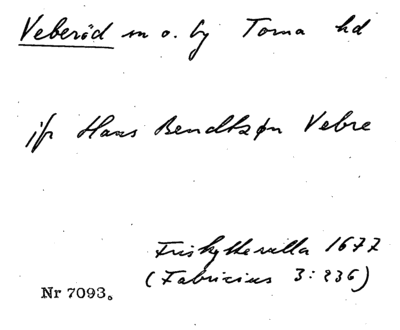 Veberöd sn o. by Torna hd
jfr Hans Bendtzøn Vebre
Friskytterulla 1677
(Fabricius 3:236)
Nr 7093.